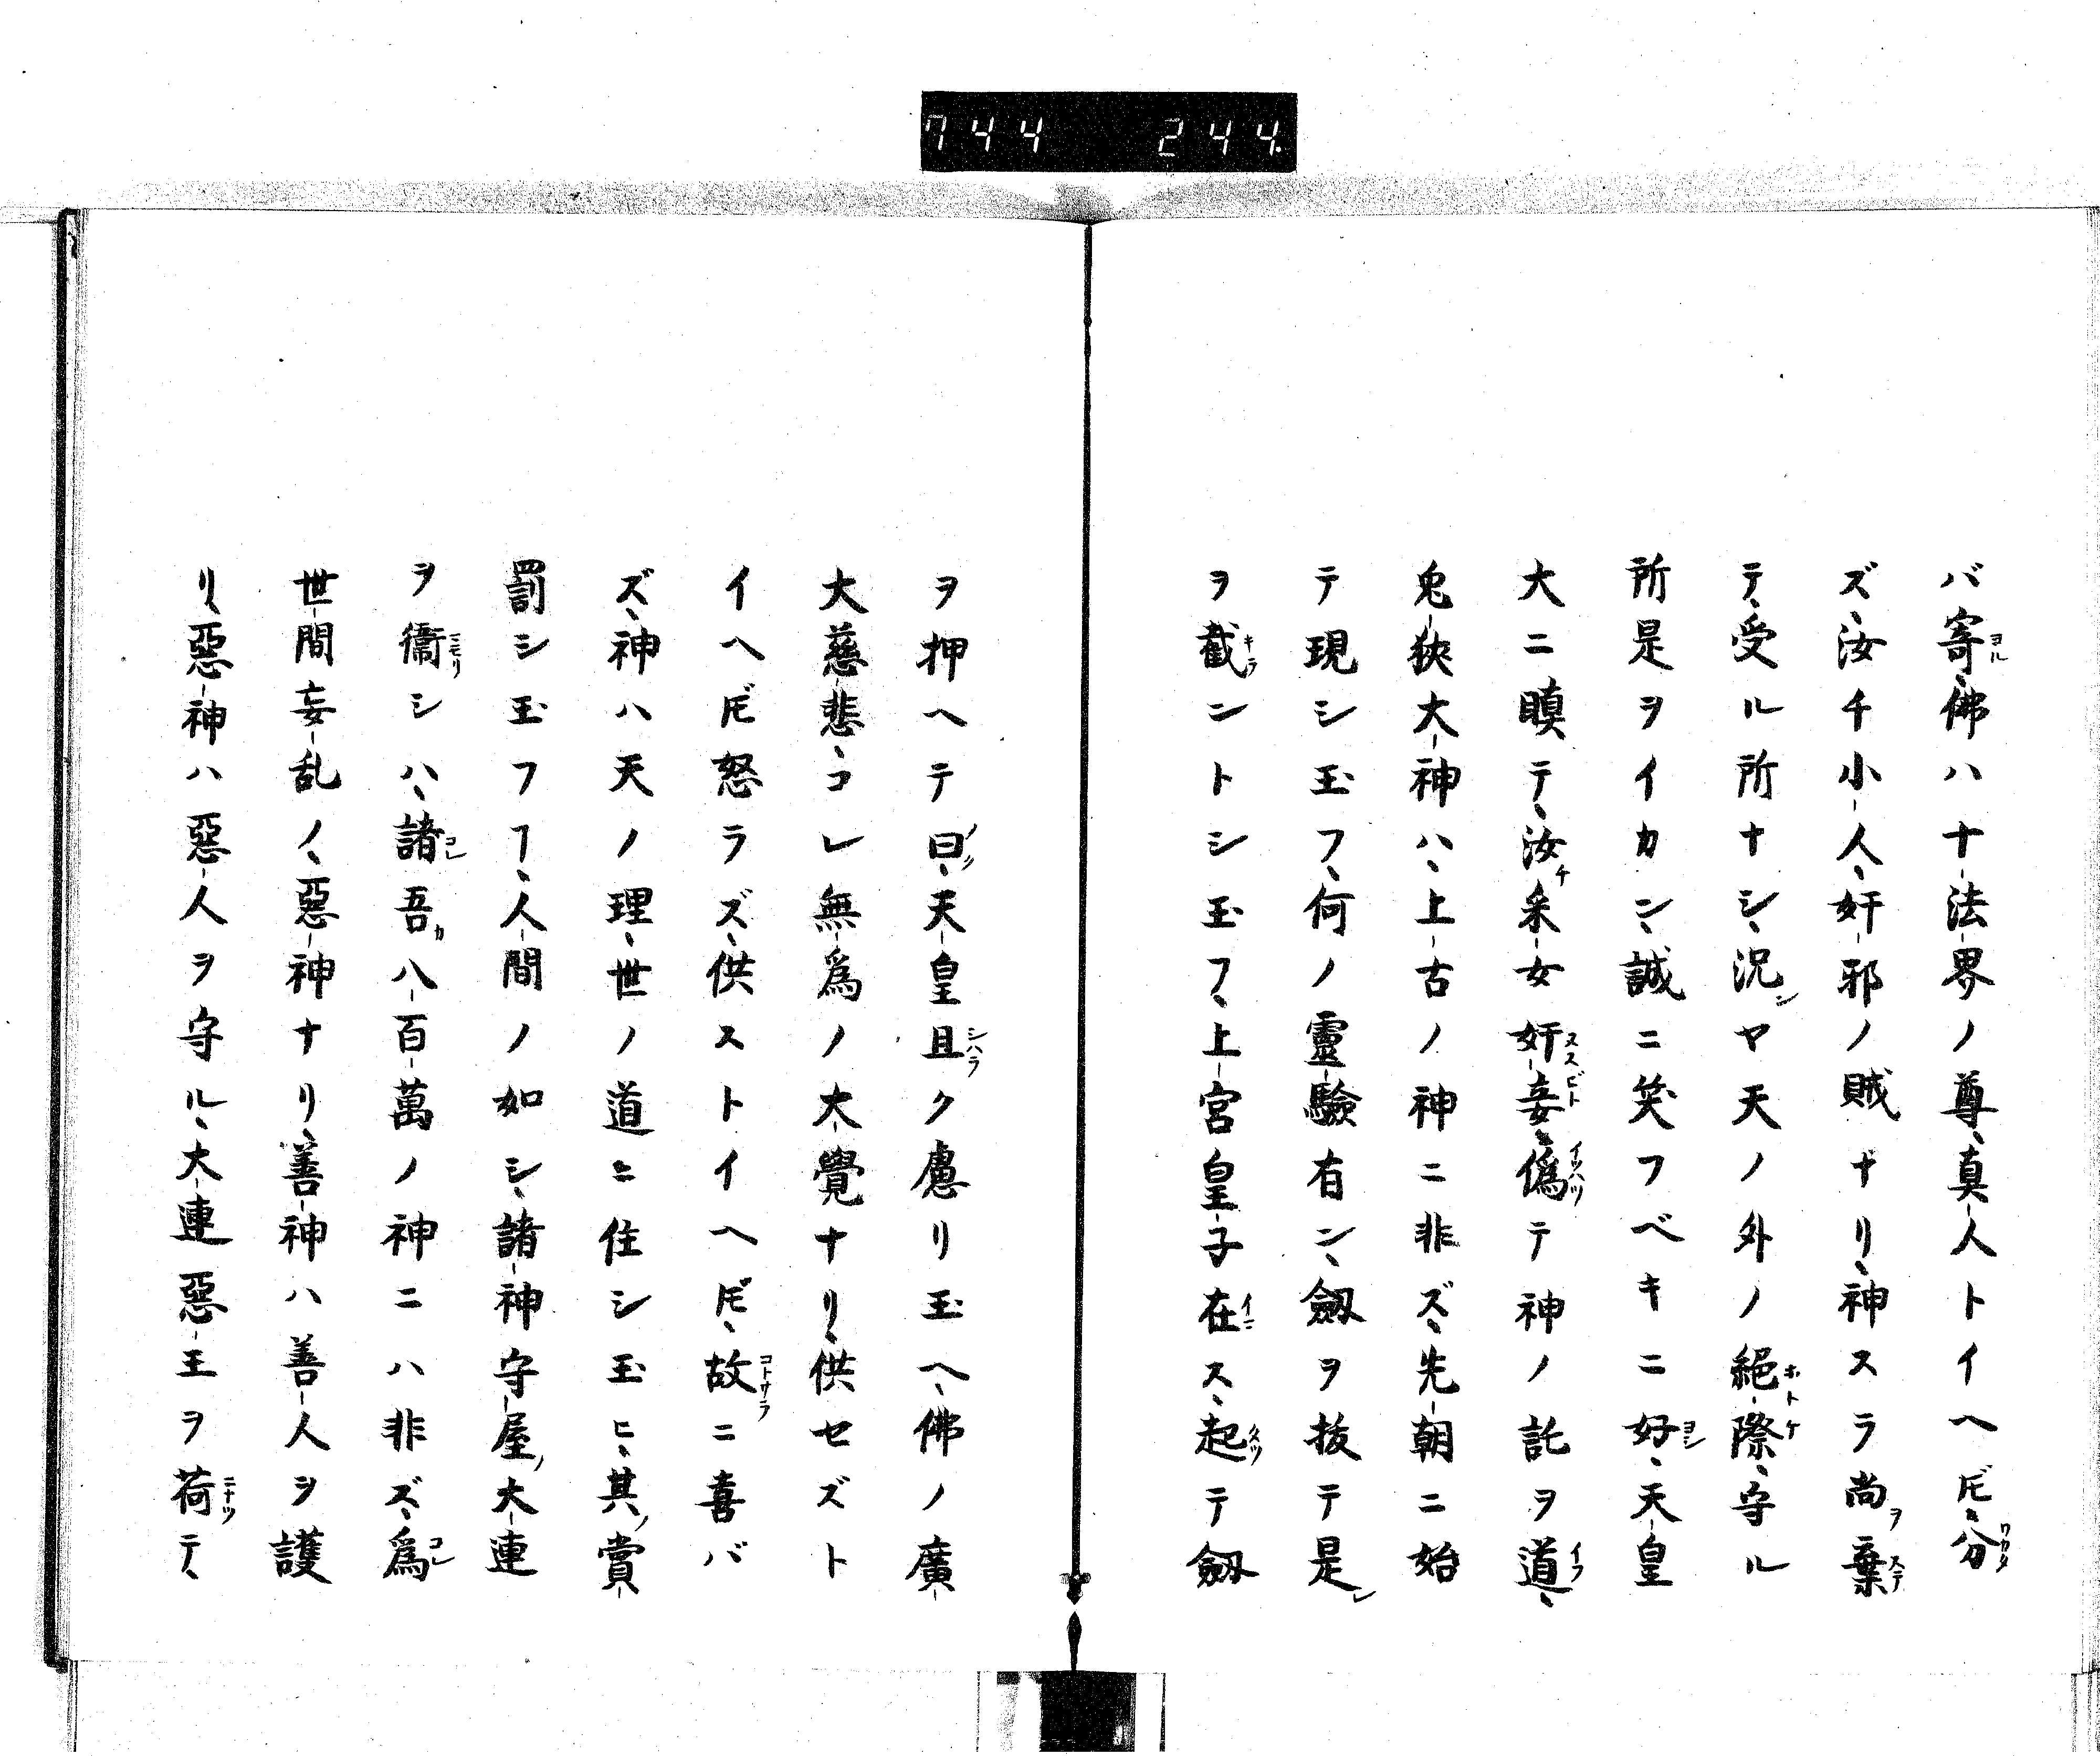 744 244.
バ寄佛ハ十法界ノ尊、真人トイヘ𪜈、分
ズ、汝チ小人、奸邪ノ賊ナリ、神スラ尚ヲ棄
テ、受ル所ナシ、況ヤ天ノ外ノ絕際、守ル
所是ヲイカン、誠ニ笑フベキニ好、天皇
大ニ瞋テ、汝チ釆女奸妾、僞テ神ノ託ヲ道、
兎狹大神ハ、上古ノ神ニ非ズ、先朝ニ始
テ現シ玉フ、何ノ靈驗有ン、劔ヲ拔テ是レ
ヲ截ントシ玉フ、上宮皇子在ス、起テ劔
ヲ押ヘテ曰、天皇且ク慮リ玉ヘ、佛ノ廣
大慈悲、コレ無爲ノ大覺ナリ、供セズト
イヘ𪜈怒ラズ、供ストイヘ𪜈、故ニ喜バ
ズ、神ハ天ノ理、世ノ道ニ住シ玉ヒ、其ノ賞
罰シ玉フヿ、人間ノ如シ、諸神守屋ノ大連
ヲ衞シハ、諸吾カ八百萬ノ神ニハ非ズ、爲
世間妄乱ノ、惡神ナリ、善神ハ善人ヲ護
リ、惡神ハ惡人ヲ守ル、大連惡王ヲ荷テ、